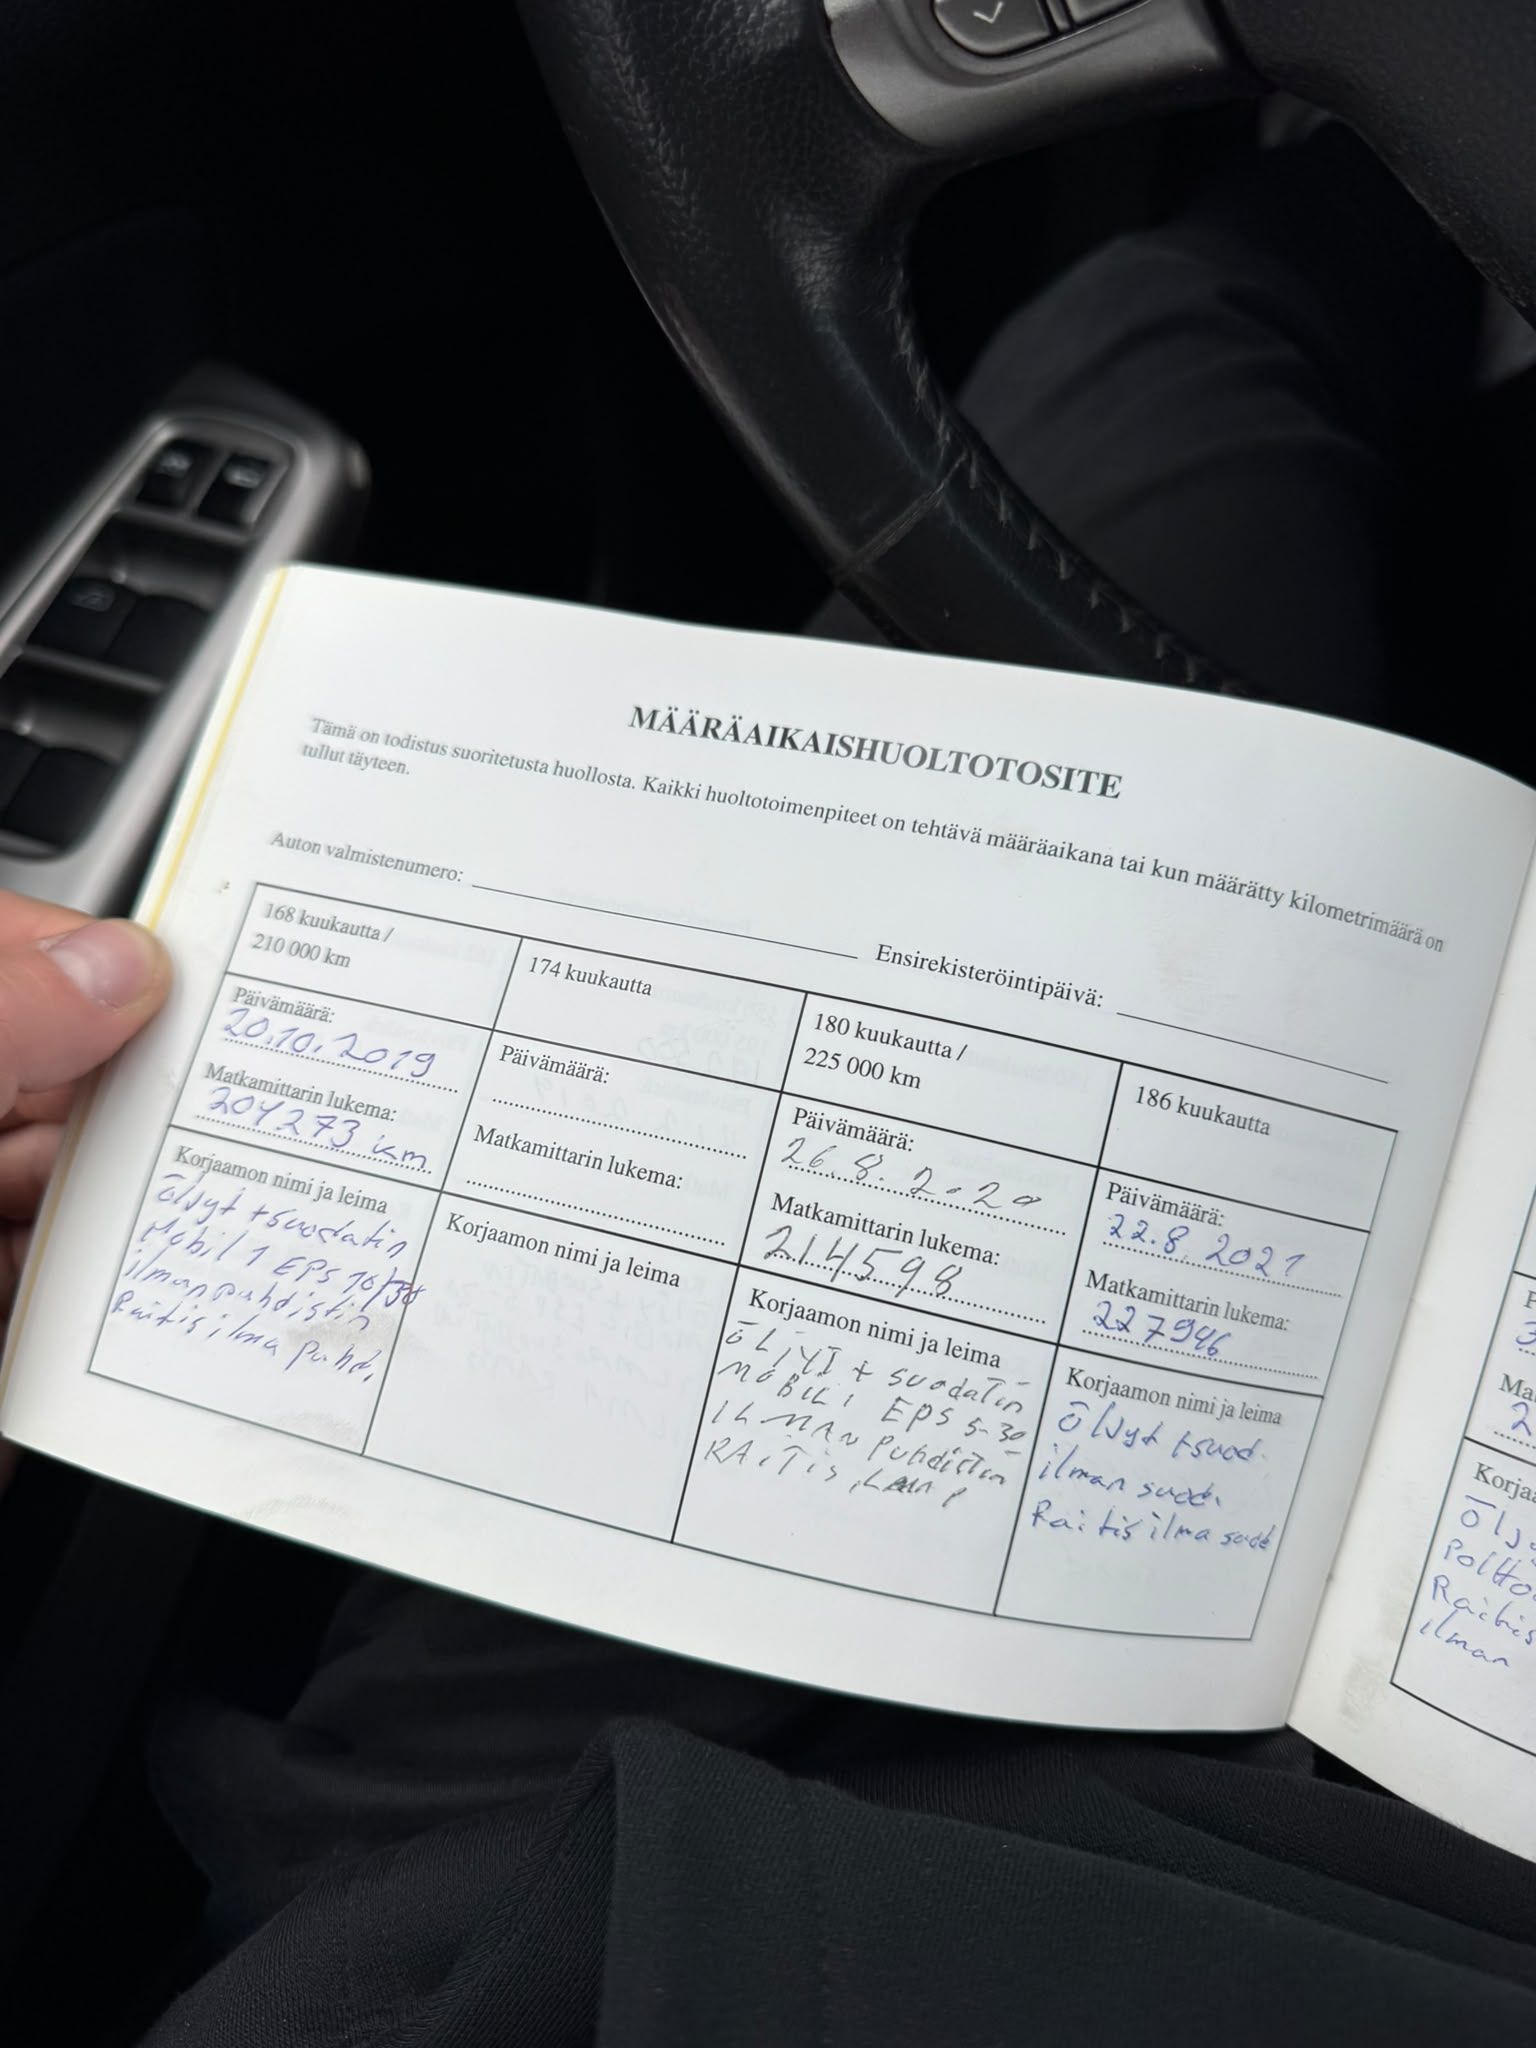 MÄÄRÄAIKAISHUOLTOTOSITE
Tämä on todistus suoritetusta huollosta. Kaikki huoltotoimenpiteet on tehtävä määräaikana tai kun määrätty kilometrimäärä on
tullut täyteen.
Auton valmistenumero:
Ensirekisteröintipäivä:
168 kuukautta /
210 000 km
Päivämäärä:
20.10.2019
Matkamittarin lukema:
204273 km
Korjaamon nimi ja leima
öljyt + suodatin
Mobil 1 EPS 10/30
ilman puhdistin
Raitis ilma puhd.
174 kuukautta
Päivämäärä:
Matkamittarin lukema:
Korjaamon nimi ja leima
180 kuukautta /
225 000 km
Päivämäärä:
26.8.2020
Matkamittarin lukema:
214598
Korjaamon nimi ja leima
öLjYT + suodatin
MOBIL 1 EPS 5-30
ILMAN PUhdistin
RAiTis iLMA P
186 kuukautta
Päivämäärä:
22.8.2021
Matkamittarin lukema:
227946
Korjaamon nimi ja leima
öljyt + suod.
ilman suod.
Raitis ilma suod
P
3
Ma
2
Korja
ölj
Poltto
Raitis
ilman